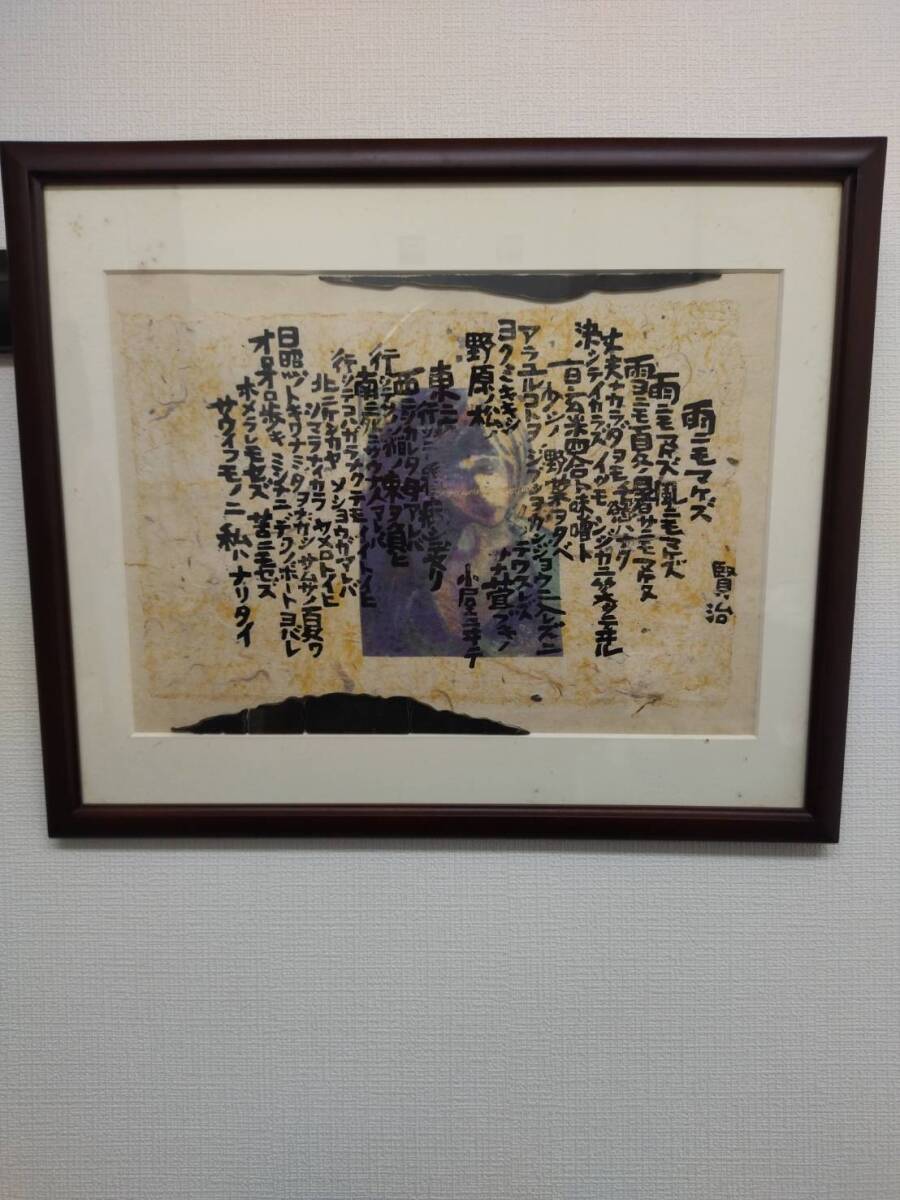 雨ニモマケズ
賢治
雨ニモマケズ風ニモマケズ
雪ニモ夏ノ暑サニモマケヌ
丈夫ナカラダヲモチ慾ハナク
決シテイカラズイツモシヅカニ笑ッテヰル
一日ニ玄米四合ト味噌ト
少シノ野菜ヲタベ
アラユルコトヲジブンヲカンジョウニ入レズニ
ヨクミキキシ
野原ノ松ノ
小屋ニヰテ
東ニ
行ッテ
西ニツカレタ母アレバ
行ッテソノ稲ノ束ヲ負ヒ
南ニ死ニサウナ人アレバ
行ッテコハガラナクテモイイトイヒ
北ニケンカヤソショウガアレバ
ツマラナイカラヤメロトイヒ
日照リノトキハナミダヲナガシサムサノ夏ハ
オロオロ歩キミンナニデクノボートヨバレ
ホメラレモセズ苦ニモセズ
サウイフモノニ私ハナリタイ